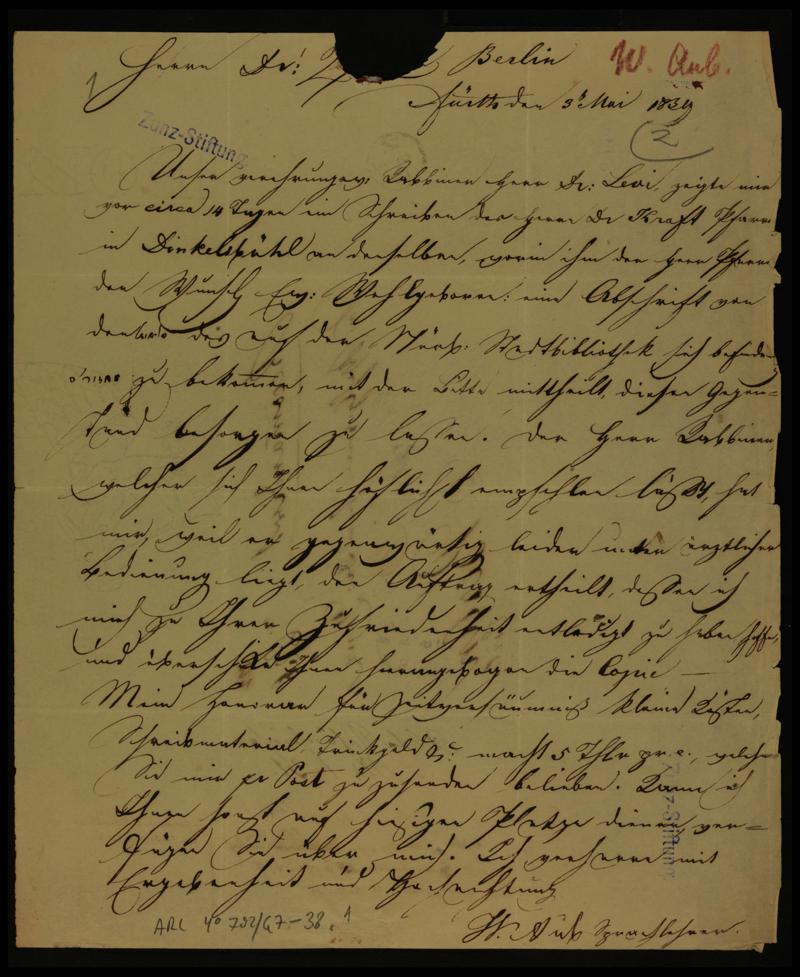 Herrn Dr: Berlin
W. Aub.
1
Fürth den 3t Mai 1839
2
Zunz-Stiftung
Unser Rabbiner Herr Dr: Levi, zeigte mir
vor circa 14 Tagen ein Schreiben des Herrn Dr Kraft Pfarr
in Dinkelsbühl an denselben, worin ihm der Herr Pfarrer
den Wunsch Ew: Wohlgeboren: eine Abschrift von
des auf der Stadtbibliothek sich befinden
zu bekommen, mit der Bitte mittheilt, diesen Gegen=
stand besorgen zu lassen. Der Herr Rabbiner,
welcher sich Ihnen höflichst empfehlen läßt, hat
mir, weil er gegenwärtig leider unter ärztlicher
Bedienung liegt, den Auftrag ertheilt, dessen ich
mich zu Ihrer Zufriedenheit entledigt zu haben hoffe,
und überschicke Ihnen hierangebogen die Copie —
Mein Honorar für Zeitversäumniß kleine Kosten,
Schreibmaterial Trinkgeld &c: macht 5 Thlr pr. c., welche
Sie mir pr Post zuzusenden belieben. Kann ich
Ihnen sonst auf hiesigem Platze dienen ver=
fügen Sie über mich. Ich verharre mit
Ergebenheit und Hochachtung
W. Aub Sprachlehrer.
Zunz-Stiftung
ARC 4o 792/G7-38.1